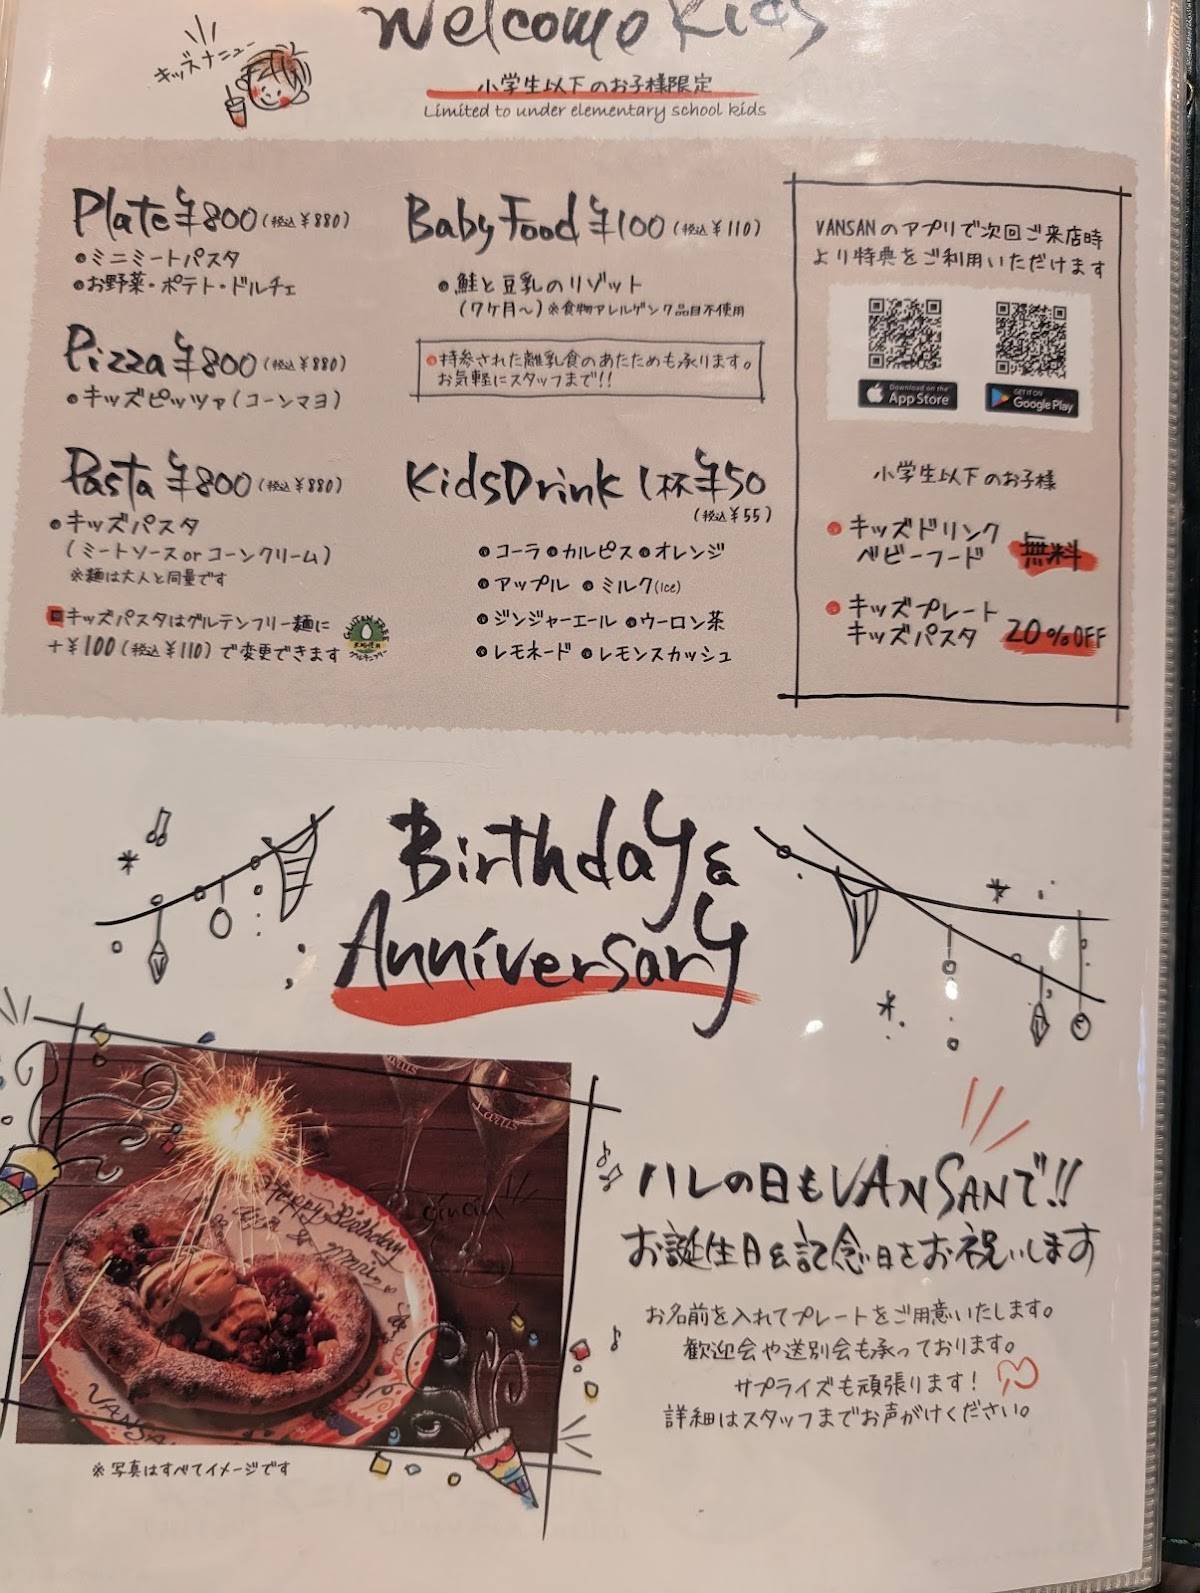 Welcome Kids
キッズメニュー
小学生以下のお子様限定
Limited to under elementary school kids
Plate ¥800 (税込¥880)
●ミニミートパスタ
●お野菜・ポテト・ドルチェ
Pizza ¥800 (税込¥880)
●キッズピッツァ(コーンマヨ)
Pasta ¥800 (税込¥880)
●キッズパスタ
(ミートソースorコーンクリーム)
※麺は大人と同量です
キッズパスタはグルテンフリー麺に
+¥100(税込¥110)で変更できます
Baby Food ¥100 (税込¥110)
●鮭と豆乳のリゾット
(7ケ月~)※食物アレルゲン7品目不使用
●持参された離乳食のあたためも承ります。
お気軽にスタッフまで!!
KidsDrink 1杯¥50
(税込¥55)
●コーラ●カルピス●オレンジ
●アップル ●ミルク(Ice)
●ジンジャーエール ●ウーロン茶
●レモネード ●レモンスカッシュ
VANSANのアプリで次回ご来店時
より特典をご利用いただけます
Download on the
App Store
GET IT ON
Google Play
小学生以下のお子様
●キッズドリンク
ベビーフード 無料
●キッズプレート
キッズパスタ 20%OFF
Birthday &
Anniversary
Happy Birthday
ハレの日もVANSANで!!
お誕生日&記念日をお祝いします
お名前を入れてプレートをご用意いたします。
歓迎会や送別会も承っております。
サプライズも頑張ります!
詳細はスタッフまでお声がけください。
※写真はすべてイメージです